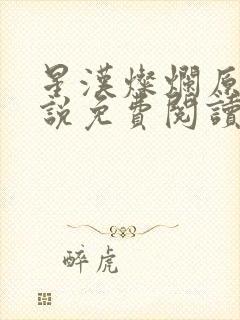 星漢燦爛原
說免費閱讀
醉虎